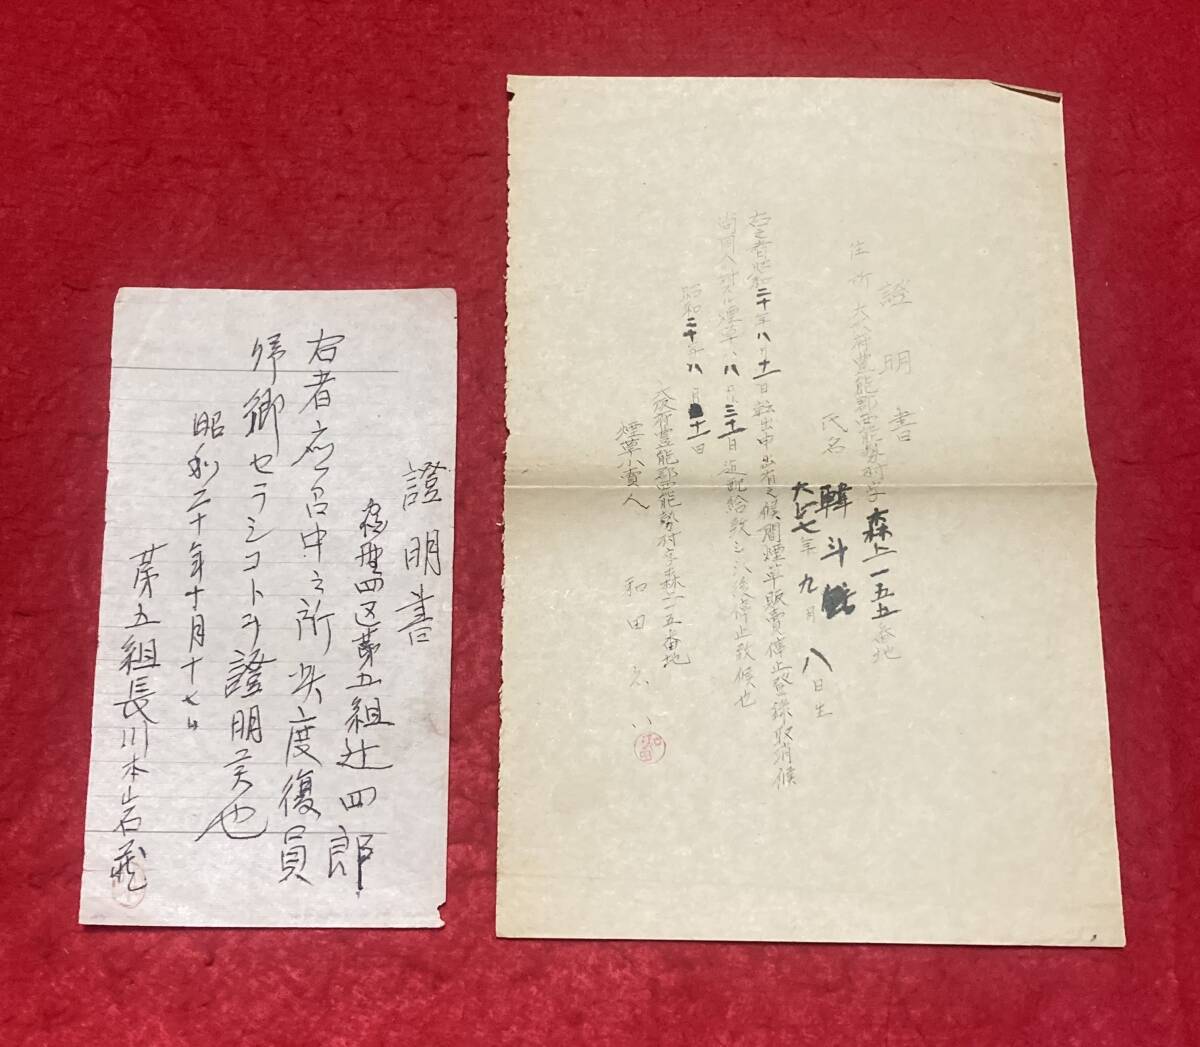 證明書
住所 大阪府豊能郡西能勢村字森上一五五番地
氏名 韓斗
大正七年九月八日生
右之者昭和二十年八月十一日転出申出有之候間煙草販賣停止登録取消候
尚同人対シ煙草ハ八月三十一日迄配給致シ以後停止致候也
昭和二十年八月十一日
大阪府豊能郡西能勢村字森上一五番地
煙草小賣人 和田
證明書
四区第五組辻四郎
右者應召中之所今度復員
帰郷セラシコトヲ證明候也
昭和二十年十月十七日
第五組長川本岩蔵